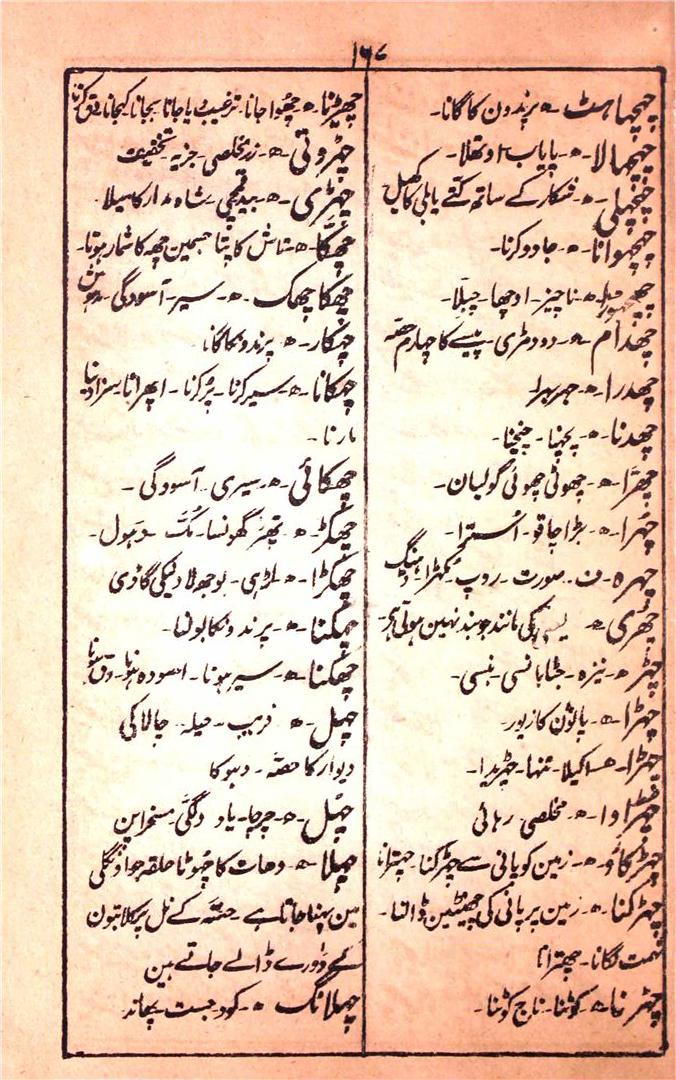 ۱۶۷
چہچہاہٹ ۔ ھ ۔ پرندون کا گانا۔
چھچھالا ۔ ھ ۔ پایاب ۔ اوتھلا۔
۔ ھ ۔ شکار کے ساتھ کتے یا بلی کا کھیل
چھچھوانا ۔ ھ ۔ جادو کرنا۔
۔ ھ ۔ ناچیز ۔ اوچھا ۔ چبلّا۔
چھدام ۔ ھ ۔ دو دمڑی ۔ پیسے کا چہارم حصّہ
چھدرا ۔ ھ ۔ جھرجھرا
چھدنا ۔ ھ ۔
چھرّا ۔ ھ ۔ چھوٹی چھوٹی گولیان۔
چھُرا ۔ ھ ۔ بڑا چاقو ۔ اُسترا۔
چہرہ ۔ ف ۔ صورت ۔ روپ ۔ مکھڑا ۔
چھُری ۔ ھ ۔ کی مانند جو بند نہین ہوتی ہی۔
چھڑ ۔ ھ ۔ نیزہ ۔ بانسی ۔ بنسی۔
چھڑا ۔ ھ ۔ پانؤن کا زیور۔
چھڑا ۔ ھ ۔ اکیلا ۔ تنہا ۔
چھڑاوا ۔ ھ ۔ مخلصی ۔ رہائی
چھڑکاؤ ۔ ھ ۔ زمین کو پانی سے چھڑکنا ۔
چھڑکنا ۔ ھ ۔ زمین پر پانی کی چھینٹین ڈالنا۔
تہمت لگانا ۔
چھڑنا ۔ ھ ۔ کوٹنا ۔ ناج کوٹنا۔
چھڑنا ۔ ھ ۔ چھُوا جانا ۔ ترغیب دیا جانا ۔ بجانا
چھڑوتی ۔ ھ ۔ زر مخلصی ۔ جزیہ ۔ تخفیف
چھڑی ۔ ھ ۔ بید ۔ قمچی ۔ شاہ مدار کا میلا۔
چھکا ۔ ھ ۔ تاش کا پتا جسمین چھہ کا شمار ہوتا۔
چھکا چھک ۔ ھ ۔ سیر ۔ آسودگی ۔ مدہوش
چہکار ۔ ھ ۔ پرندونکا گانا
چھکانا ۔ ھ ۔ سیر کرنا ۔ پُر کرنا ۔ اپھرانا ۔ سزا دینا
مارنا ۔
چھکائی ۔ ھ ۔ سیری ۔ آسودگی ۔
چھکڑ ۔ ھ ۔ تھپڑ ۔ گھونسا ۔ مُکّ ۔ دہول۔
چھکڑا ۔ ھ ۔ لڑھی ۔ بوجھ لادنیکی گاڑی
چہکنا ۔ ھ ۔ پرندونکا بولنا۔
چھکنا ۔ ھ ۔ سیر ہونا ۔ آسودہ ہونا ۔ دق ہونا
چھل ۔ ھ ۔ فریب ۔ حیلہ ۔ چالاکی
دیوار کا حصّہ ۔ دہوکا
چہل ۔ ھ ۔ چرچا ۔ یاد ۔ دلگی ۔ مسخراپن
چھلا ۔ ھ ۔ دھات کا چھوٹا حلقہ جو اونگلی
مین پہنا جاتا ہے ۔ حقّہ کے نل پر کلابتون
کے ڈورے ڈالے جاتے ہین
چھلانگ ۔ ھ ۔ کود ۔ جست ۔ پھاند